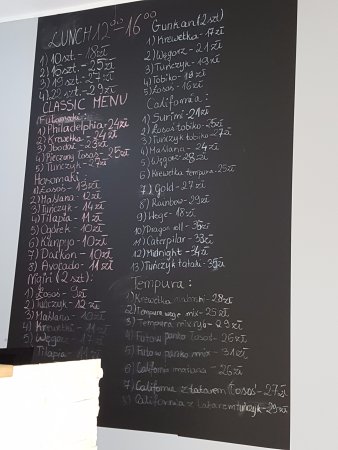 LUNCH 12⁰⁰-16⁰⁰
1) 10 szt. - 18 zł
2) 16 szt. - 25 zł
4) 22 szt. - 29 zł
CLASSIC MENU
Futomaki:
1) Philadelphia - 24 zł
2) Krewetka - 24 zł
3) Ibodai - 23 zł
4) Pieczony łosoś - 25 zł
5) Tuńczyk - 27 zł
Hosomaki:
1) Łosoś - 13 zł
2) Maślana - 12 zł
3) Tuńczyk - 14 zł
4) Tilapia - 11 zł
5) Ogórek - 10 zł
6) Kanpyo - 10 zł
7) Daikon - 10 zł
8) Avocado - 11 zł
Nigiri (2 szt):
1) Łosoś - 9 zł
2) Tuńczyk - 12 zł
3) Maślana - 10 zł
4) Krewetka - 11 zł
5) Węgorz - 17 zł
Tilapia - 11 zł
Gunkan (2 szt)
1) Krewetka - 17 zł
2) Węgorz - 21 zł
3) Tuńczyk - 19 zł
4) Tobiko - 19 zł
5) Łosoś - 16 zł
California:
1) Surimi - 21 zł
2) Łosoś tobiko - 25 zł
3) Tuńczyk tobiko - 27 zł
4) Maślana - 24 zł
5) Węgorz - 28 zł
6) Krewetka tempura - 25 zł
7) Gold - 27 zł
8) Rainbow - 29 zł
9) Wege - 18 zł
10) Dragon roll - 35 zł
11) Caterpilar - 33 zł
12) Midnight - 34 zł
13) Tuńczyk tataki - 35 zł
Tempura:
1) Krewetka - 28 zł
2) Tempura wege mix - 25 zł
3) Tempura mix ryb - 29 zł
4) Futo w panko łosoś - 26 zł
5) Futo w panko mix - 31 zł
6) California maślana - 26 zł
7) California z tatarem łosoś - 27 zł
8) California z tatarem tuńczyk - 29 zł